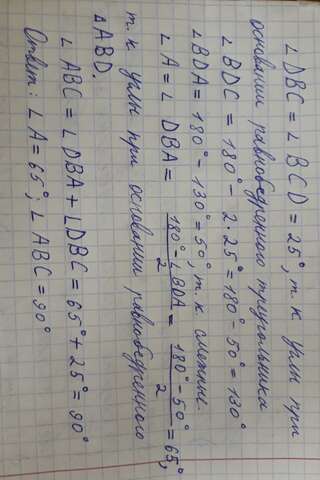 ∠DBC = ∠BCD = 25°, т. к углы при
основании равнобедренного треугольника
∠BDC = 180° - 2·25° = 180° - 50° = 130°
∠BDA = 180° - 130° = 50°, т. к смежные.
∠A = ∠DBA = (180° - ∠BDA)/2 = (180° - 50°)/2 = 65°,
т. к углы при основании равнобедренного
△ABD.
∠ABC = ∠DBA + ∠DBC = 65° + 25° = 90°
Ответ: ∠A = 65°; ∠ABC = 90°